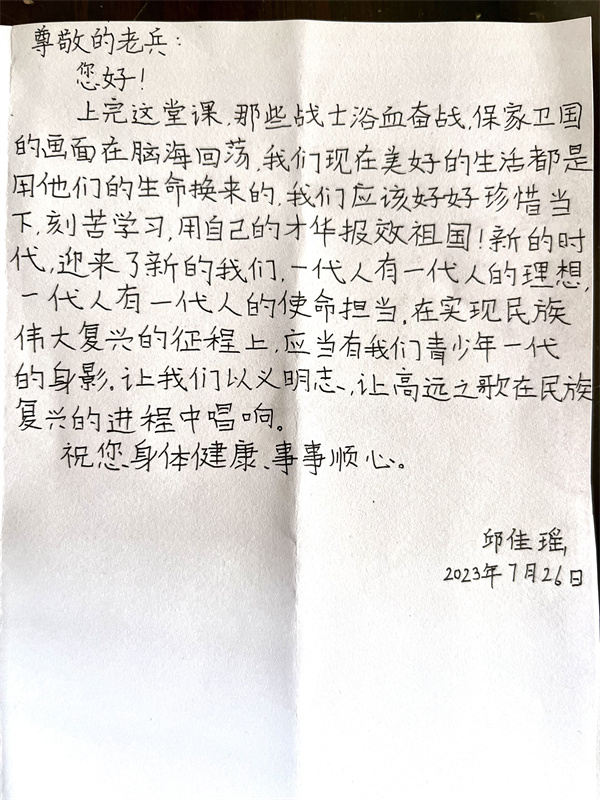 尊敬的老兵：
您好！
上完这堂课，那些战士浴血奋战，保家卫国
的画面在脑海回荡，我们现在美好的生活都是
用他们的生命换来的，我们应该好好珍惜当
下，刻苦学习，用自己的才华报效祖国！新的时
代，迎来了新的我们，一代人有一代人的理想，
一代人有一代人的使命担当，在实现民族
伟大复兴的征程上，应当有我们青少年一代
的身影。让我们以义明志，让高远之歌在民族
复兴的进程中唱响。
祝您身体健康、事事顺心。
邱佳瑶
2023年7月26日